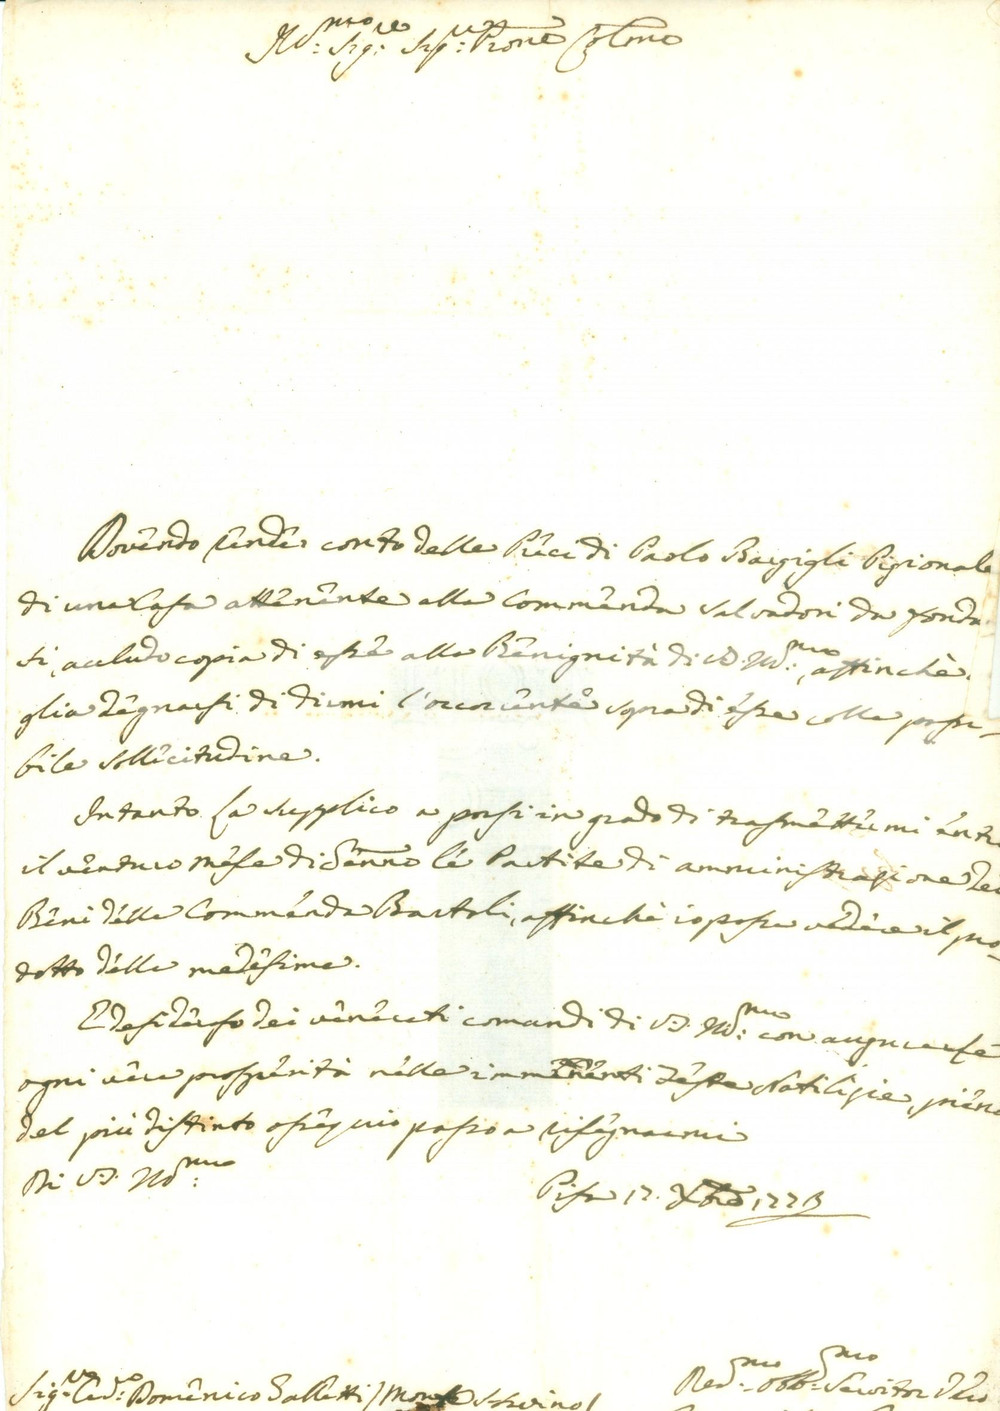 Ill:mo Sig:re Sig:re Prone Colmo
Dovendo render conto delle Preci di Paolo Bargigli Pigionale
di una Casa attenente alla Commenda Salvadori da
si, accludo copia di esse alla Benignità di V.S. Ill:ma, affinchè
glia degnarsi di dirmi l'occorrente sopra di esse colla possi-
bile sollecitudine.
Intanto La supplico a porsi in grado di trasmettermi entro
il venturo Mese di Genno le Partite di amministrazione dei
Beni della Commenda Bartoli, affinchè io possa vedere il pro-
dotto della medesima.
E desideroso dei venerati comandi di V.S. Ill:ma con augurarle
ogni vera prosperità nelle imminenti feste Natilizie, pieno
del più distinto ossequio passo a rassegnarmi
Di V.S. Ill:ma
Pisa 17. Xbre 1773
Sig:re Domenico Galletti / Monte S. Savino /
Dev:mo Obb:mo Servitor Vero